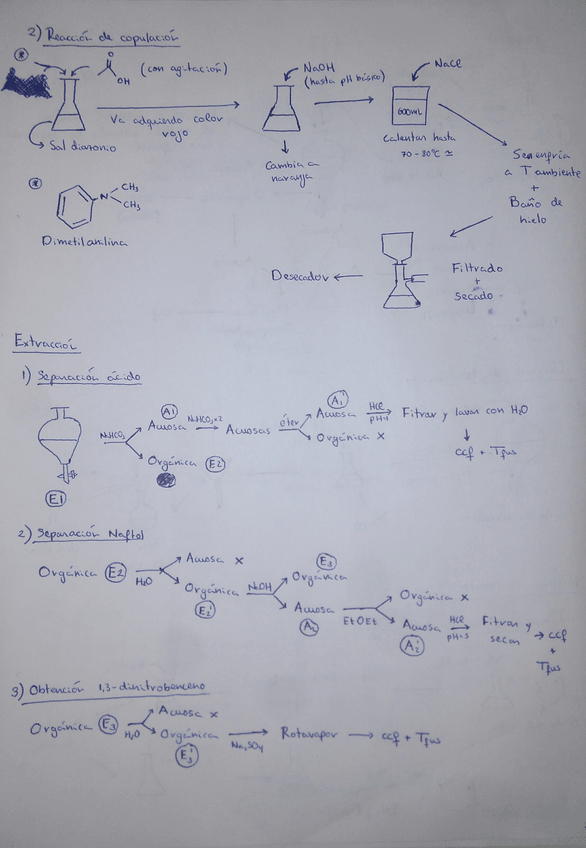 2) Reacción de copulación
*
O
OH
(con agitación)
NaOH
(hasta pH básico)
NaCl
Va adquiriendo color
rojo
600mL
Sal diazonio
Cambia a
naranja
Calentar hasta
70-80ºC ≃
Se enfría
a T ambiente
+
Baño de
hielo
*
N
CH3
CH3
Dimetilanilina
Desecador
Filtrado
+
secado
Extracción
1) Separación ácido
E1
NaHCO3
A1
Acuosa
NaHCO3 x2
Acuosas
éter
A1'
Acuosa
HCl
pH=1
Filtrar y lavar con H2O
ccf + Tfus
Orgánica x
Orgánica E2
2) Separación Naftol
Orgánica E2
H2O
Acuosa x
Orgánica
E2'
NaOH
E3
Orgánica
Acuosa
A2
EtOEt
Orgánica x
Acuosa
A2'
HCl
pH=5
Filtrar y
secar
ccf
+
Tfus
3) Obtención 1,3-dinitrobenceno
Orgánica E3
H2O
Acuosa x
Orgánica
E3'
Na2SO4
Rotavapor
ccf + Tfus